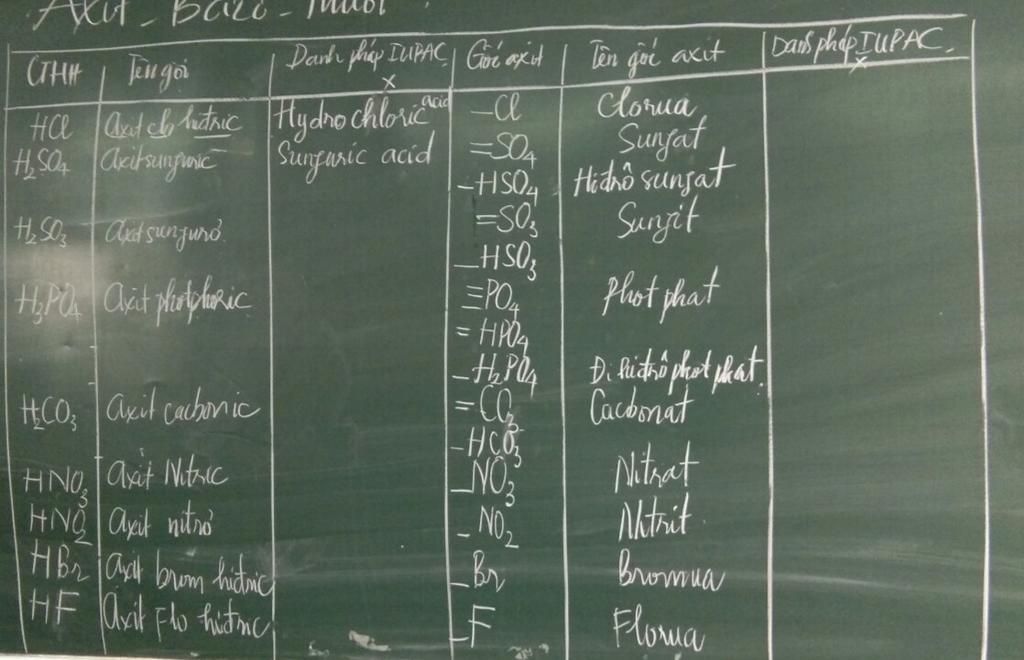 Axit - Bazơ - Muối.
CTHH Tên gọi Danh pháp IUPAC Gốc axit Tên gốc axit Danh pháp IUPAC.
x x
HCl Axit clo hiđric Hydrochloric acid –Cl Clorua
H2SO4 Axit sunfuric Sunfuric acid =SO4 Sunfat
–HSO4 Hiđrô sunfat
H2SO3 Axit sunfurơ =SO3 Sunfit
–HSO3
H3PO4 Axit photphoric ≡PO4 Phot phat
=HPO4
–H2PO4 Đi hiđrô phot phat.
H2CO3 axit cacbonic =CO3 Cacbonat
–HCO3
HNO3 Axit Nitric –NO3 Nitrat
HNO2 Axit nitrơ –NO2 Nitrit.
HBr Axit brom hiđric –Br Bromua
HF Axit Flo hiđric –F Florua